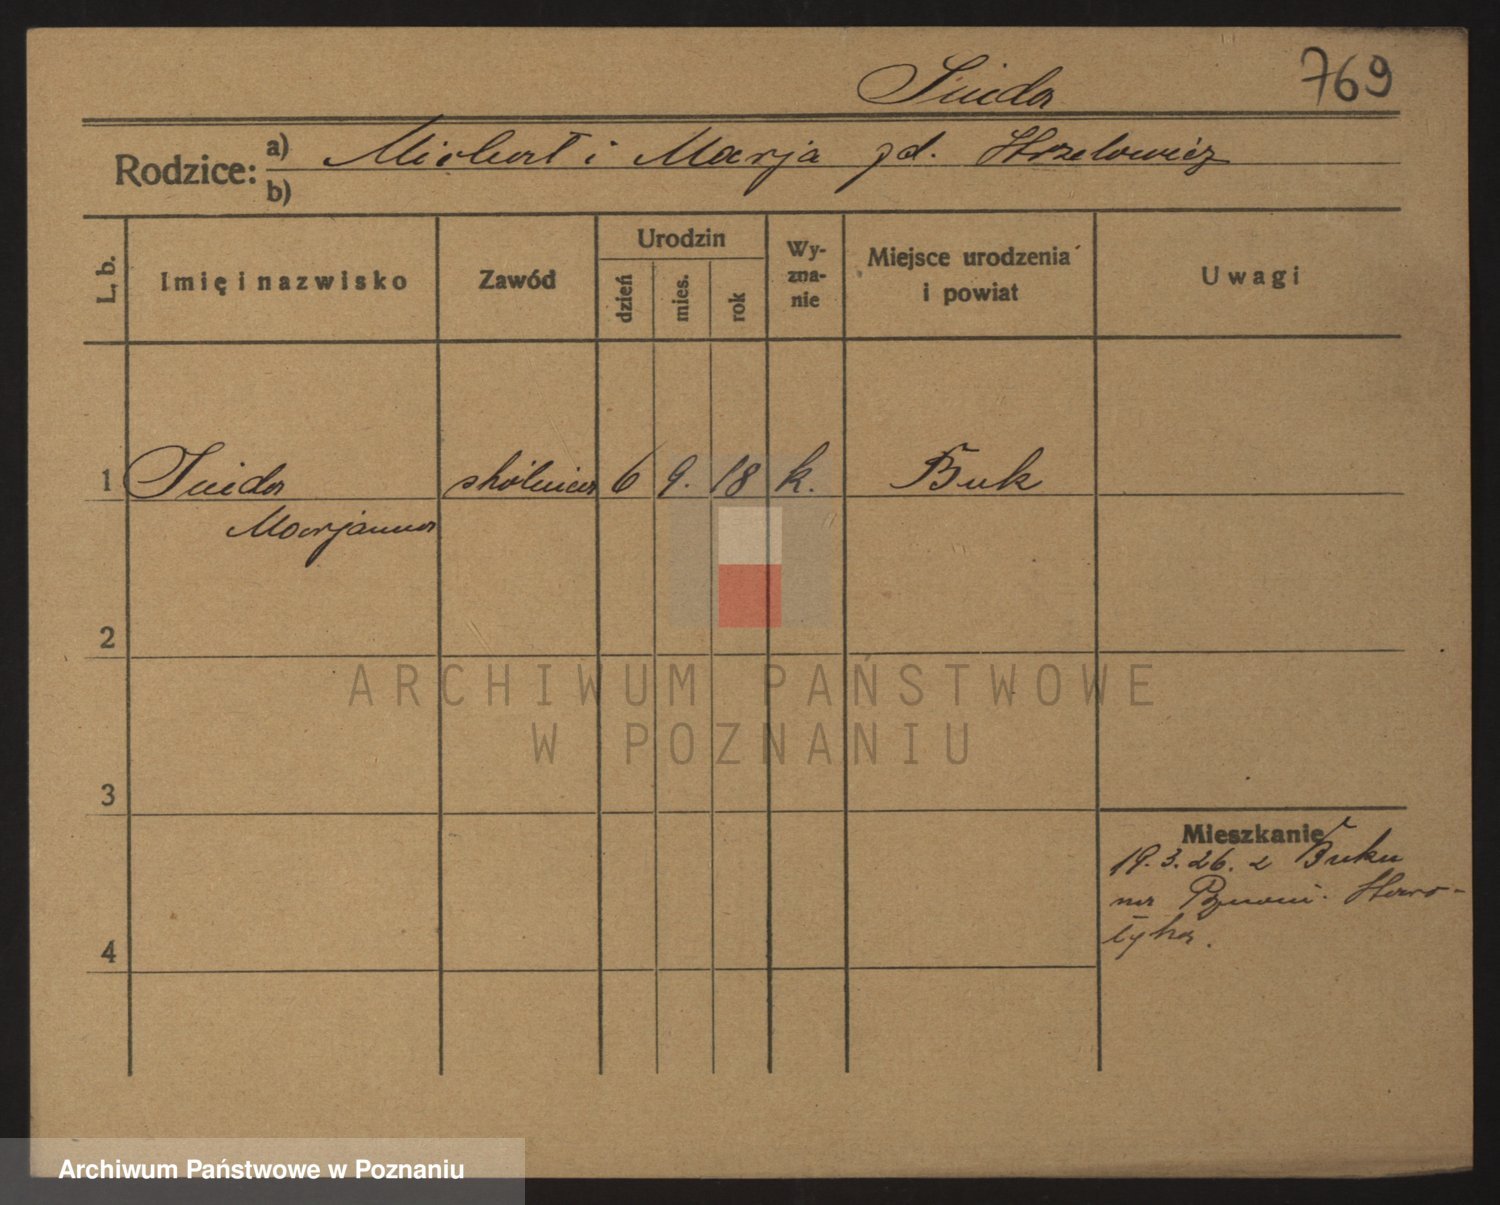 769
Rodzice: a) Michał i Marja zd. Strzelewicz
b)
L. b.
Imię i nazwisko
Zawód
Urodzin
dzień
mies.
rok
Wy-
zna-
nie
Miejsce urodzenia
i powiat
Uwagi
1 6 9. 18 k. Buk
Marjanna
2
3
4
Mieszkanie
19.3.26. z Buku
na
ARCHIWUM PAŃSTWOWE
W POZNANIU
Archiwum Państwowe w Poznaniu